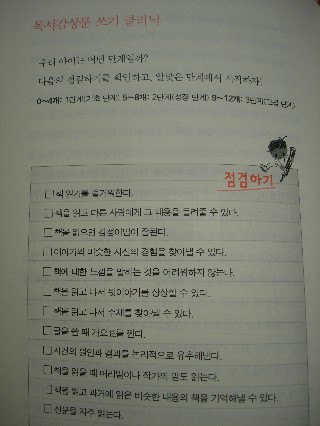 독서감상문 쓰기 클리닉
우리 아이는 어떤 단계일까?
다음의 점검하기를 확인하고, 알맞은 단계에서 시작하자!
0~4개: 1단계(기초 단계) 5~8개: 2단계(성장 단계) 9~12개: 3단계(고급 단계)
점검하기
□ 책 읽기를 즐거워한다.
□ 책을 읽고 다른 사람에게 그 내용을 들려줄 수 있다.
□ 책을 읽으면 감정이입이 잘된다.
□ 이야기와 비슷한 자신의 경험을 찾아낼 수 있다.
□ 책에 대한 느낌을 말하는 것을 어려워하지 않는다.
□ 책을 읽고 나서 뒷이야기를 상상할 수 있다.
□ 책을 읽고 나서 주제를 찾아낼 수 있다.
□ 글을 쓸 때 개요표를 짠다.
□ 사건의 원인과 결과를 논리적으로 유추해낸다.
□ 책을 읽을 때 머리말이나 작가의 말도 읽는다.
□ 책을 읽고 과거에 읽은 비슷한 내용의 책을 기억해낼 수 있다.
□ 신문을 자주 읽는다.